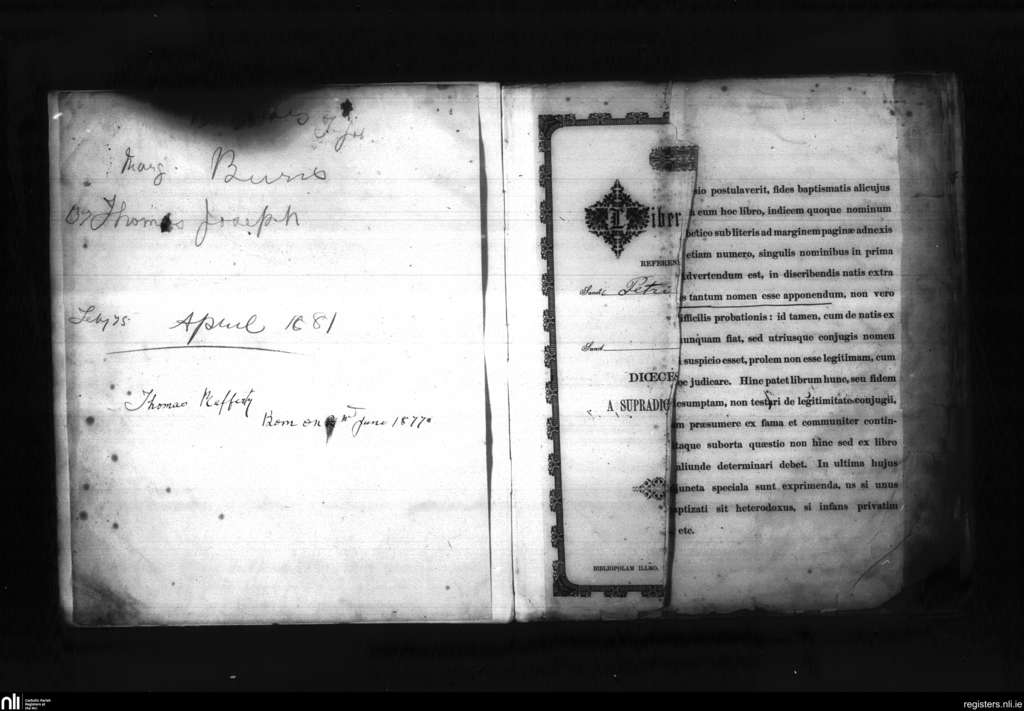 Marg. Burns
Thomas Joseph
April 1881
Thomas Rafferty
Born on June 1877
Liber
REFEREN
Sancti Petri
Sanct
DIŒCES
A SUPRADIC
BIBLIOPOLAM ILLMO.
sio postulaverit, fides baptismatis alicujus
a cum hoc libro, indicem quoque nominum
betico sub literis ad marginem paginæ adnexis
etiam numero, singulis nominibus in prima
Advertendum est, in discribendis natis extra
s tantum nomen esse apponendum, non vero
ifficilis probationis: id tamen, cum de natis ex
unquam fiat, sed utriusque conjugis nomen
i suspicio esset, prolem non esse legitimam, cum
oc judicare. Hinc patet librum hunc, seu fidem
esumptam, non testari de legitimitate conjugii,
m præsumere ex fama et communiter contin-
itaque suborta quæstio non hinc sed ex libro
aliunde determinari debet. In ultima hujus
juncta speciala sunt exprimenda, us si unus
aptizati sit heterodoxus, si infans privatim
etc.
nli
Catholic Parish
Registers at
the NLI
registers.nli.ie